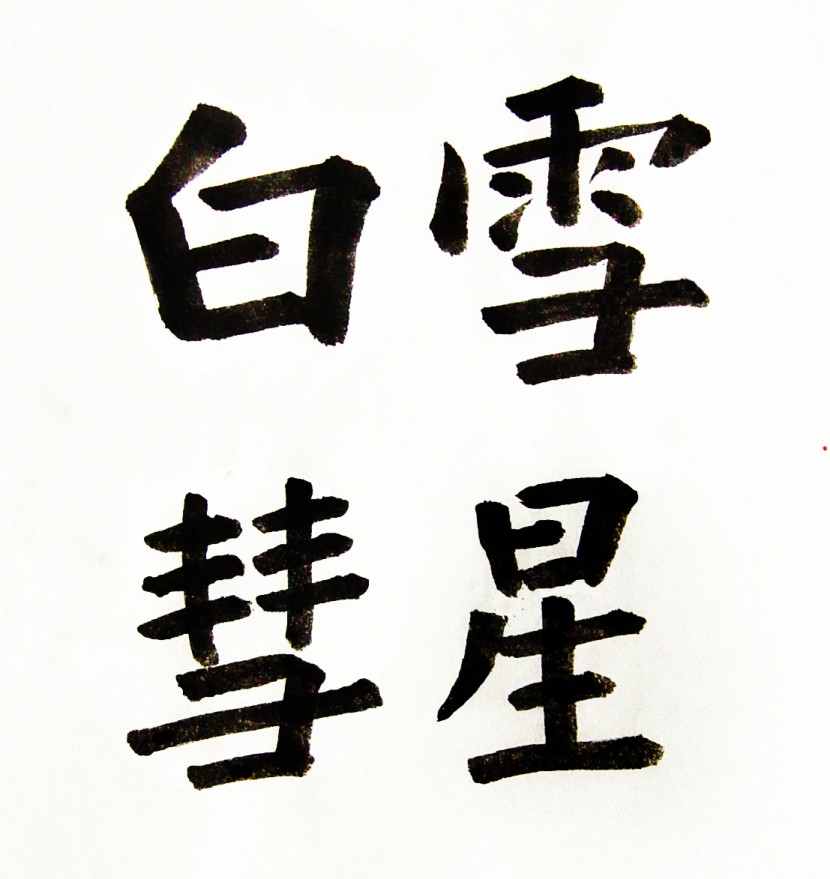 白雪
彗星